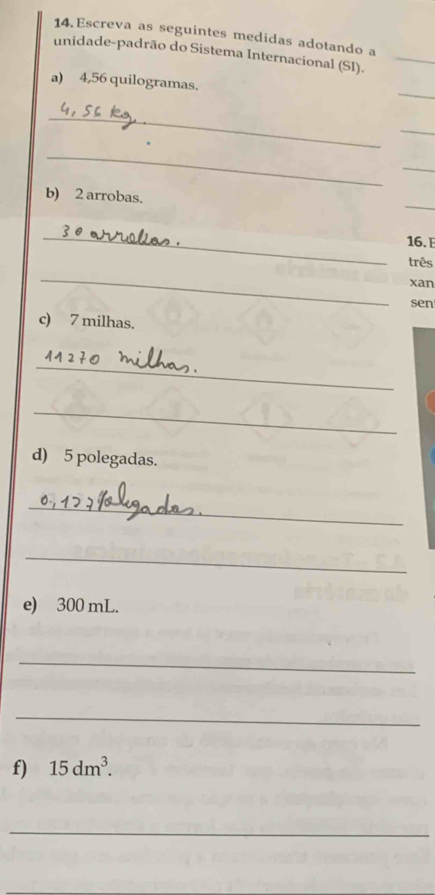 14. Escreva as seguintes medidas adotando a
unidade-padrão do Sistema Internacional (SI).
a) 4,56 quilogramas.
4,56 kg.
b) 2 arrobas.
30 arrobas.
16. E
três
xan
sen
c) 7 milhas.
11270 milhas.
d) 5 polegadas.
0,127 polegadas.
e) 300 mL.
f) 15 dm³.